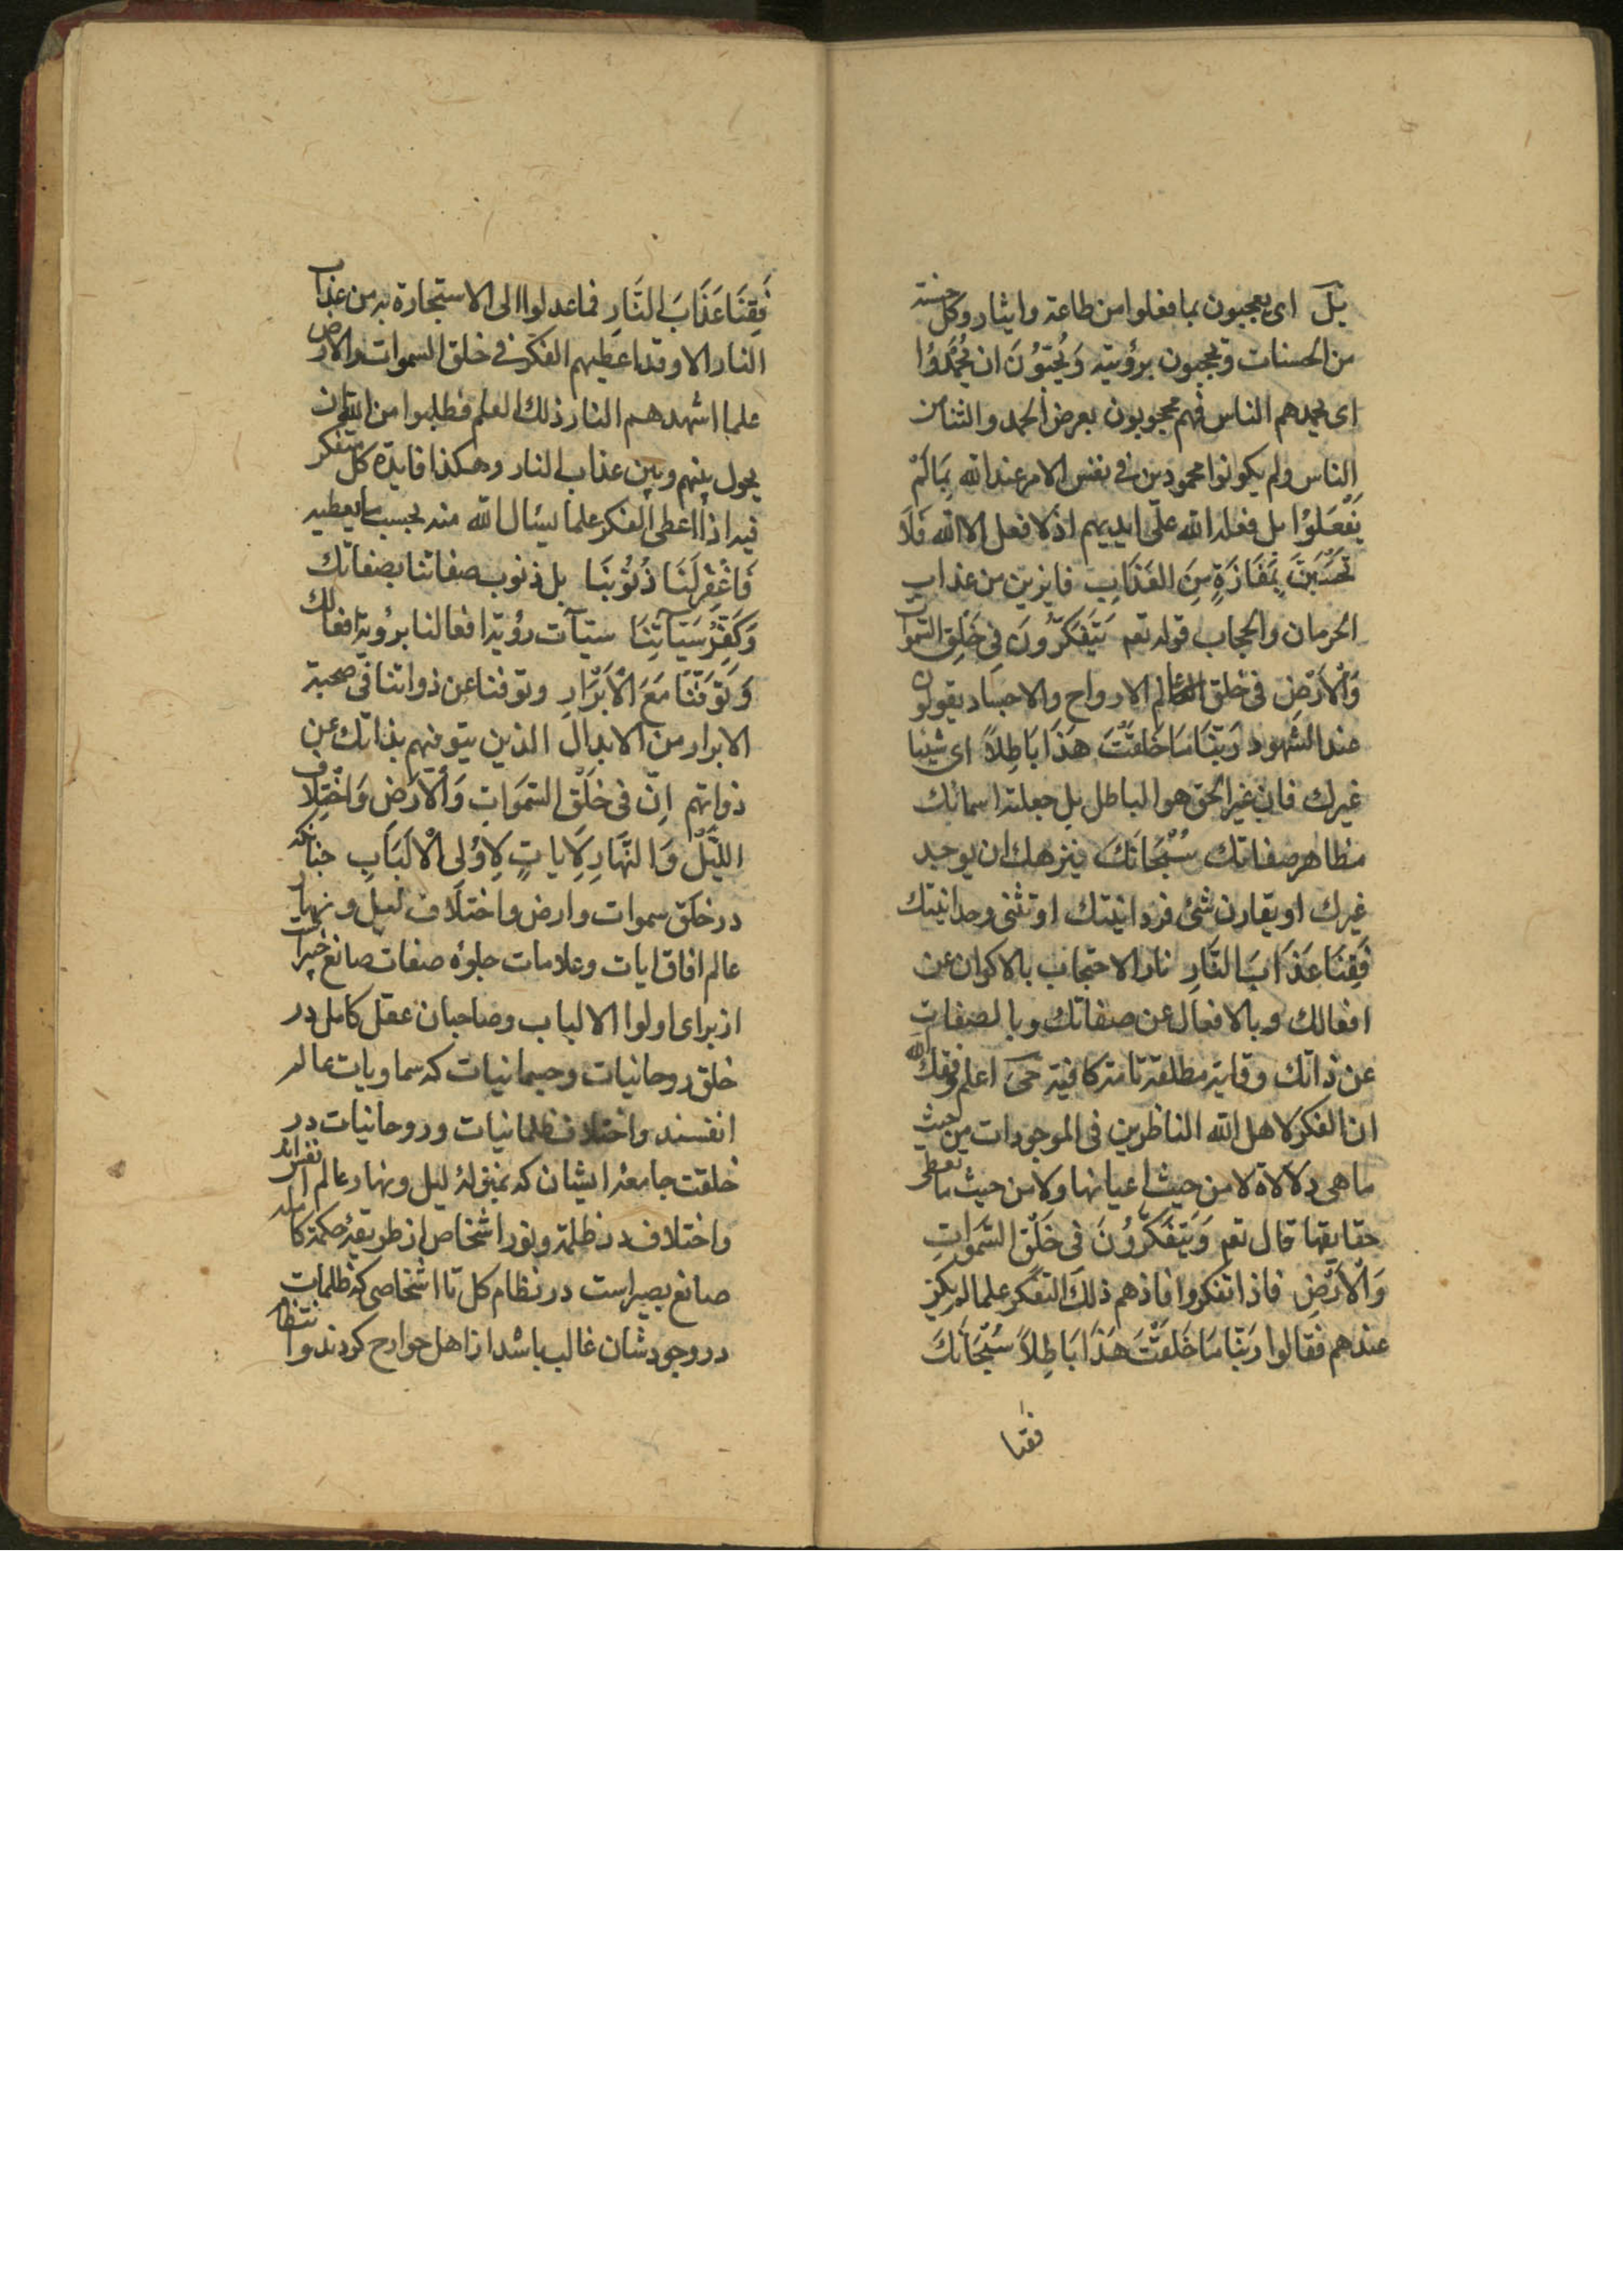 يل اى يعجبون بما فعلوا من طاعة وايثار وكل حسنة
من الحسنات ويحجبون برؤيته وَيُحِبّوُنَ ان يُحْمَدُوا
اى يحمدهم الناس فهم محجوبون بعرض الحمد والثنا من
الناس ولم يكونوا محمودين فى نفس الامر عند الله بِمَا لَمْ
يَفْعَلُوْا بل فعله الله على ايديهم اذ لا فعل الا الله فَلَا
تَحْسَبَنَّ بِمَفَازَةٍ مِنَ العَذَابِ فايزين من عذاب
الحرمان والحجاب قوله تعم يَتَفَكَّرُونَ فِى خَلْقِ السَّموات
وَالْاَرْضِ فى خلق عالم الارواح والاجساد يقولون
عند الشهود رَبَّنَا مَا خَلَقْتَ هَذَا بَاطِلاً اى شيئا
غيرك فان غير الحق هو الباطل بل جعلته اسمائك
مظاهر صفاتك سُبْحَانَكَ ننزهك ان يوجد
غيرك او يقارن شئ فردانيتك او تثنى وحدانيتك
فَقِنَا عَذَابَ النَّارِ نار الاحتجاب بالاكوان عن
افعالك وبالافعال عن صفاتك وبالصفات
عن ذاتك وقاية مطلقة تامة كافية حى اعلم وفقك الله
ان الفكر لاهل الله الناظرين فى الموجودات من حيث
ما هى دلالاة لا من حيث اعيانها ولا من حيث ما تعطى
حقايقها قال تعم وَيَتَفَكَّرُوْنَ فى خَلْقِ السَّمَوَاتِ
وَالْاَرْضِ فاذا تفكروا فاذهم ذلك التفكر علما لم يكن
عندهم فقالوا رَبَّنَا مَا خَلَقْتَ هَذَا بَاطِلاً سُبْحَانَكَ
فقنا
فَقِنَا عَذَابَ النَّارِ فما عدلوا الى الاستجارة به من عذاب
النار الا وقد اعطيهم الفكر فى خلق السموات والارض
علما اشهدهم النار ذلك العلم فطلبوا من الله ان
يحول بينهم وبين عذاب النار وهكذا فايدة كل متفكر
فيه اذا اعطى الفكر علما يسئال الله منه بحسب ما يعطيه
فَاغْفِرْلَنَا ذُنُوْبَنَا بل ذنوب صفاتنا بصفاتك
وَكَفِّرْ سَيّآتِنَا سيّآت رؤية افعالنا برؤية افعالك
وَتَوَفَّنَا مَعَ الْاَبْرَارِ وتوفنا عن ذواتنا فى صحبة
الابرار من الابدال الذين يتوفيهم بذاتك عن
ذواتهم اِنّ فى خَلْقِ السَّمَوَاتِ وَالْاَرَضِ وَاخْتِلاَفِ
اللَّيْلِ وَالنَّهَارِ لَايَاتٍ لِاوُلِى الْاَلْبَابِ چنانكه
در خلق سموات وارض واختلاف ليل ونهار
عالم افاق ايات وعلامات جلوۀ صفات صانع خيراست
از براى اولوا الالباب وصاحبان عقل كامل در
خلق روحانيات وجسمانيات كه سماويات عالم
انفسند واختلاف ظلمانيات وروحانيات در
خلقت جامعۀ ايشان كه بمنزلۀ ليل ونهار عالم انفس اند
واختلاف در ظلمة ونور اشخاص از طريقۀ حكمة كامله
صانع بصير است در نظام كل تا اشخاصى كه ظلمات
در وجودشان غالب باشد از اهل جوارح كردند وانتظام